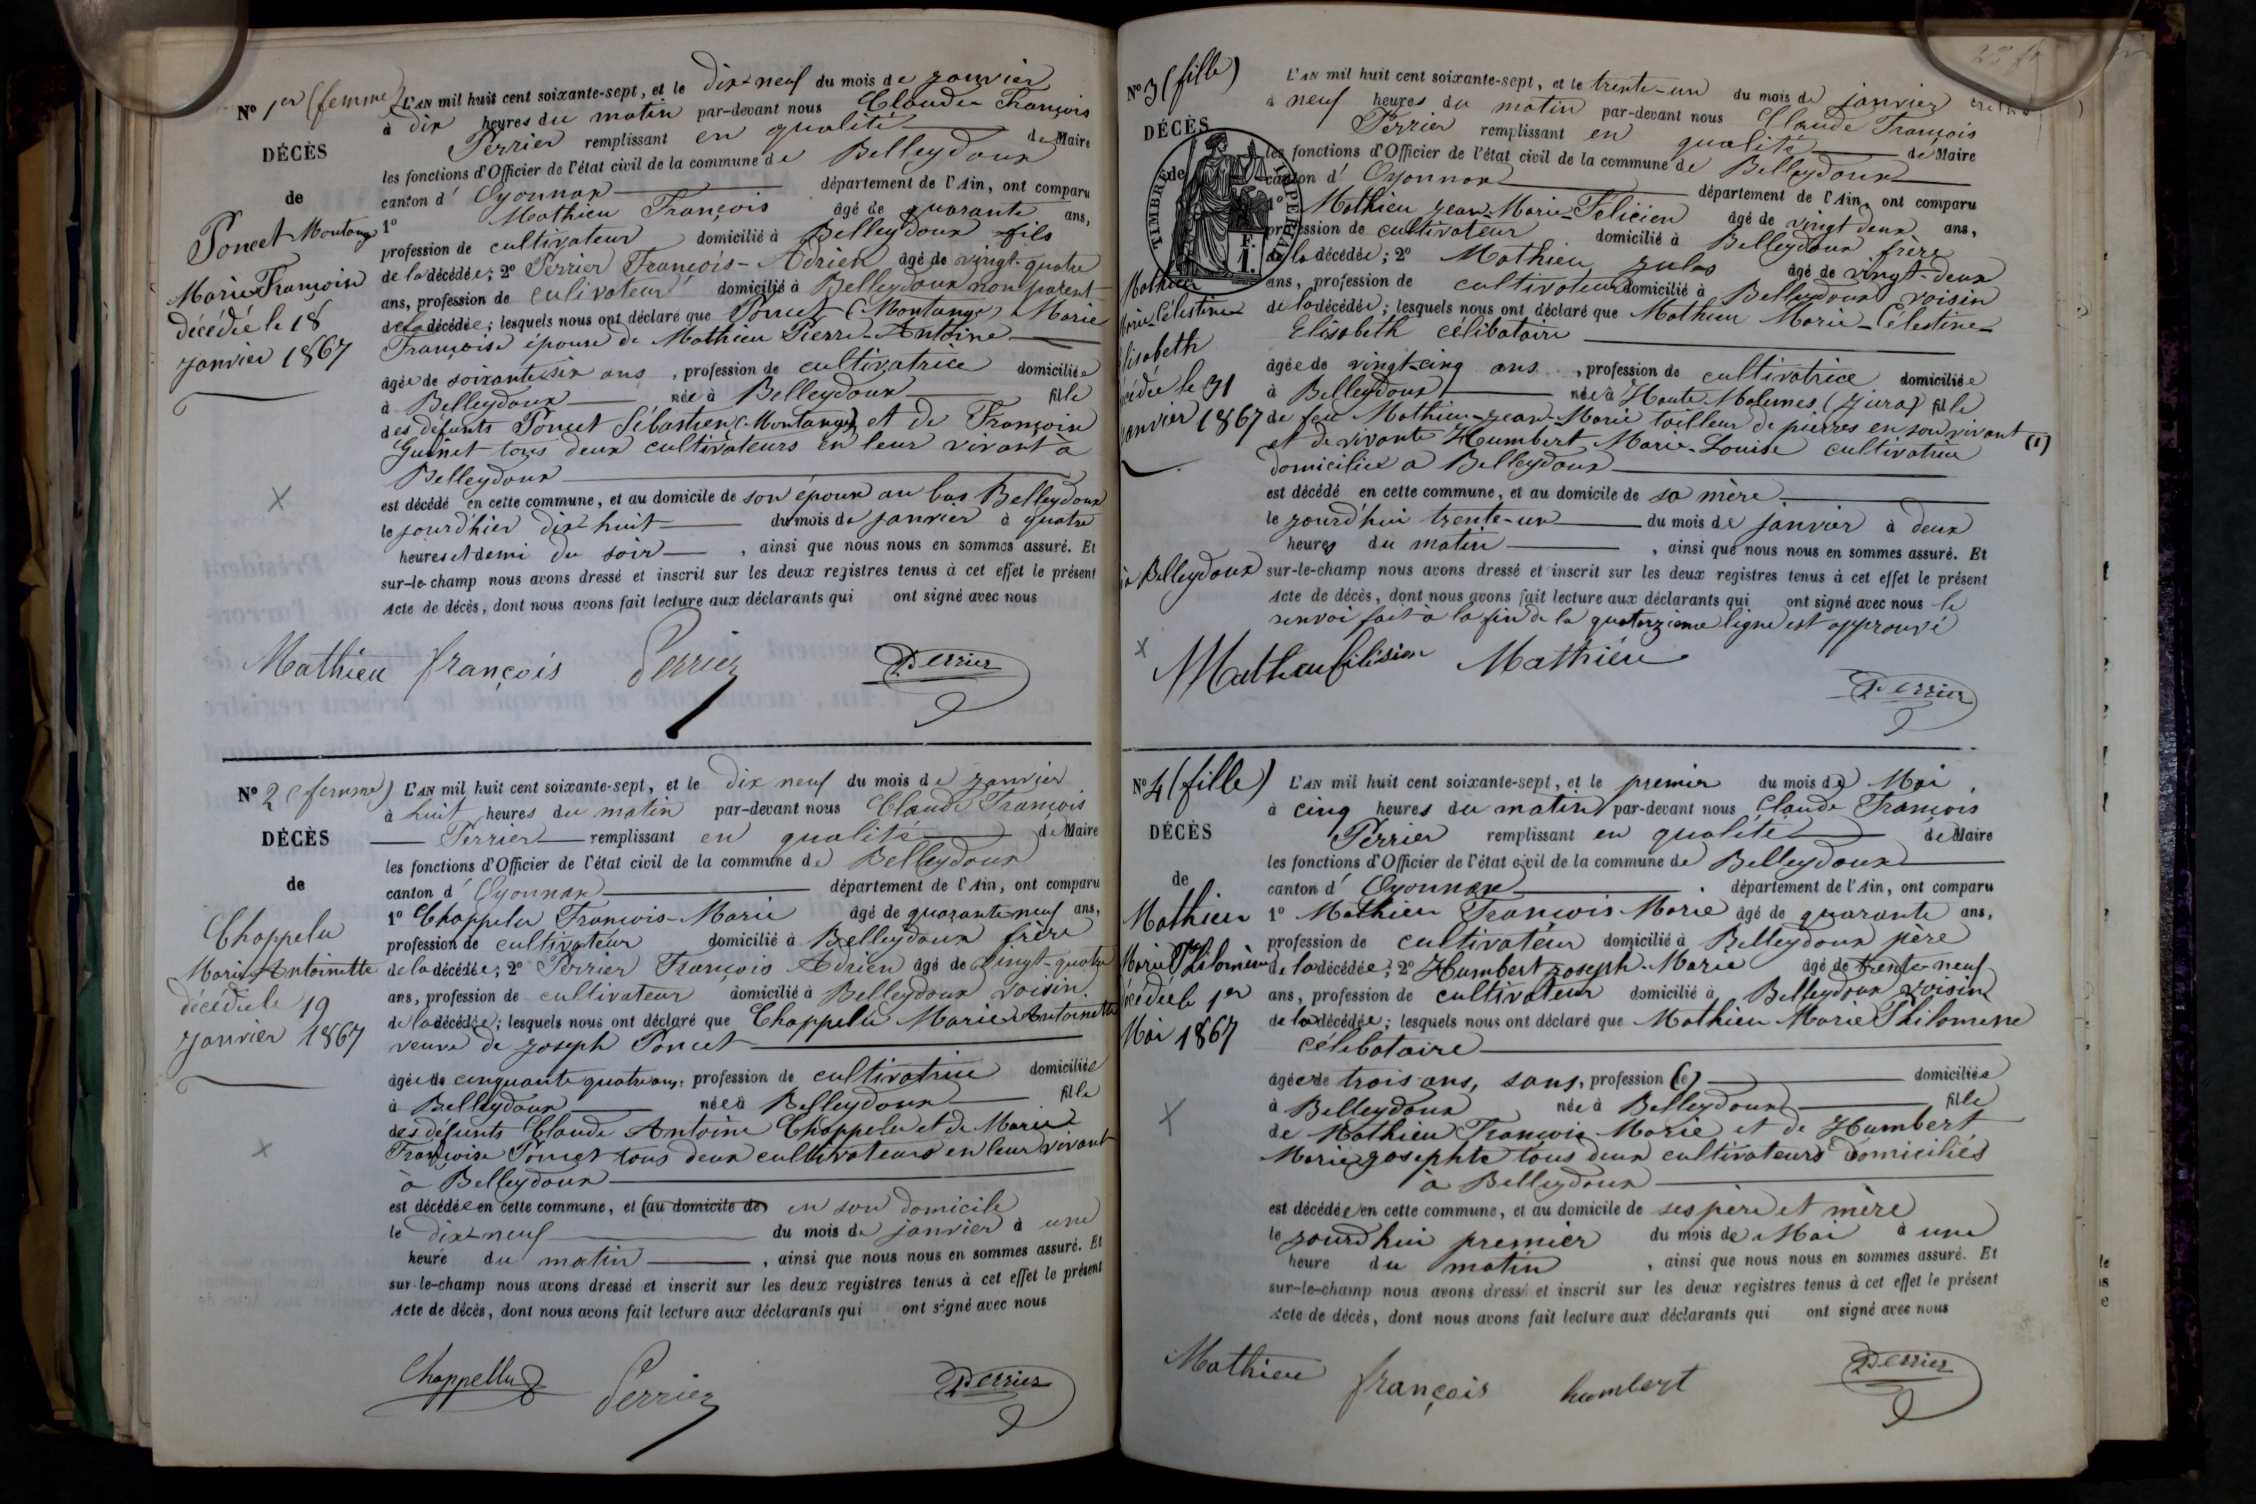 Nº 1er (femme)
DÉCÈS
de
Poncet-Montange
Marie Françoise
décédée le 18
janvier 1867
L'AN mil huit cent soixante-sept, et le dix-neuf du mois de janvier
à dix heures du matin par-devant nous Claude François
Perrier remplissant en qualité de Maire
les fonctions d'Officier de l'état civil de la commune de Belleydoux
canton d'Oyonnax département de l'Ain, ont comparu
1º Mathieu François âgé de quarante ans,
profession de cultivateur domicilié à Belleydoux fils
de la décédée; 2º Perrier François-Adrien âgé de vingt-quatre
ans, profession de culivateur domicilié à Belleydoux non parent
de la décédée; lesquels nous ont déclaré que Poncet (Montange) Marie
Françoise épouse de Mathieu Pierre-Antoine
âgée de soixante six ans, profession de cultivatrice domiciliée
à Belleydoux née à Belleydoux fille
des défunts Poncet Sébastien (Montange) et de Françoise
Guinet tous deux cultivateurs en leur vivant à
Belleydoux
est décédé en cette commune, et au domicile de son époux au bas Belleydoux
le jourd'hier dix huit du mois de janvier à quatre
heures et demi du soir, ainsi que nous nous en sommes assuré. Et
sur-le-champ nous avons dressé et inscrit sur les deux registres tenus à cet effet le présent
Acte de décès, dont nous avons fait lecture aux déclarants qui ont signé avec nous
Mathieu françois Perrier Perrier
Nº 2 (femme)
DÉCÈS
de
Chappelu
Marie Antoinette
décédée le 19
janvier 1867
L'AN mil huit cent soixante-sept, et le dix neuf du mois de janvier
à huit heures du matin par-devant nous Claude François
Perrier remplissant en qualité de Maire
les fonctions d'Officier de l'état civil de la commune de Belleydoux
canton d'Oyonnax département de l'Ain, ont comparu
1º Chappelu François-Marie âgé de quarante neuf ans,
profession de cultivateur domicilié à Belleydoux frère
de la décédée; 2º Perrier François Adrien âgé de vingt-quatre
ans, profession de cultivateur domicilié à Belleydoux voisin
de la décédée; lesquels nous ont déclaré que Chappelu Marie Antoinette
veuve de Joseph Poncet
âgée de cinquante quatre ans, profession de cultivatrice domiciliée
à Belleydoux née à Belleydoux fille
des défunts Claude Antoine Chappelu et de Marie
Françoise Poncet tous deux cultivateurs en leur vivant
à Belleydoux
est décédée en cette commune, et (au domicile de) en son domicile
le dix-neuf du mois de janvier à une
heure du matin, ainsi que nous nous en sommes assuré. Et
sur-le-champ nous avons dressé et inscrit sur les deux registres tenus à cet effet le présent
Acte de décès, dont nous avons fait lecture aux déclarants qui ont signé avec nous
Chappellu Perrier Perrier
Nº 3 (fille)
DÉCÈS
de
TIMBRE IMPÉRIAL
F.
1.
Mathieu
Marie-Célestine
Elisabeth
décédée le 31
janvier 1867
L'AN mil huit cent soixante-sept, et le trente-un du mois de janvier
à neuf heures du matin par-devant nous Claude François
Perrier remplissant en qualité de Maire
les fonctions d'Officier de l'état civil de la commune de Belleydoux
canton d'Oyonnax département de l'Ain, ont comparu
1º Mathieu Jean-Marie-Félicien âgé de vingt deux ans,
profession de cultivateur domicilié à Belleydoux frère
de la décédée; 2º Mathieu Jules âgé de vingt-deux
ans, profession de cultivateur domicilié à Belleydoux voisin
de la décédée; lesquels nous ont déclaré que Mathieu Marie-Célestine-
Elisabeth célibataire
âgée de vingt-cinq ans, profession de cultivatrice domiciliée
à Belleydoux née à Haute-Molunes (Jura) fille
de feu Mathieu-Jean-Marie tailleur de pierres en son vivant (1)
et de vivante Humbert Marie-Louise cultivatrice
domiciliée a Belleydoux
est décédé en cette commune, et au domicile de sa mère
le jourd'hui trente-un du mois de janvier à deux
heures du matin, ainsi que nous nous en sommes assuré. Et
à Belleydoux
sur-le-champ nous avons dressé et inscrit sur les deux registres tenus à cet effet le présent
Acte de décès, dont nous avons fait lecture aux déclarants qui ont signé avec nous le
renvoi fait à la fin de la quatorzième ligne est approuvé
Mathieu félisien Mathieu
Perrier
Nº 4 (fille)
DÉCÈS
de
Mathieu
Marie Philomène
décédée le 1er
Mai 1867
L'AN mil huit cent soixante-sept, et le premier du mois de Mai
à cinq heures du matin par-devant nous Claude François
Perrier remplissant en qualité de Maire
les fonctions d'Officier de l'état civil de la commune de Belleydoux
canton d'Oyonnax département de l'Ain, ont comparu
1º Mathieu François Marie âgé de quarante ans,
profession de cultivateur domicilié à Belleydoux père
de la décédée; 2º Humbert Joseph-Marie âgé de trente-neuf
ans, profession de cultivateur domicilié à Belleydoux voisin
de la décédée; lesquels nous ont déclaré que Mathieu Marie Philomene
célibataire
âgée de trois ans, sans, profession (de) domiciliée
à Belleydoux née à Belleydoux fille
de Mathieu François Marie et de Humbert
Marie Josephte tous deux cultivateurs domiciliés
à Belleydoux
est décédée en cette commune, et au domicile de ses père et mère
le jourd'hui premier du mois de Mai à une
heure du matin, ainsi que nous nous en sommes assuré. Et
sur-le-champ nous avons dressé et inscrit sur les deux registres tenus à cet effet le présent
Acte de décès, dont nous avons fait lecture aux déclarants qui ont signé avec nous
Mathieu françois humbert Perrier